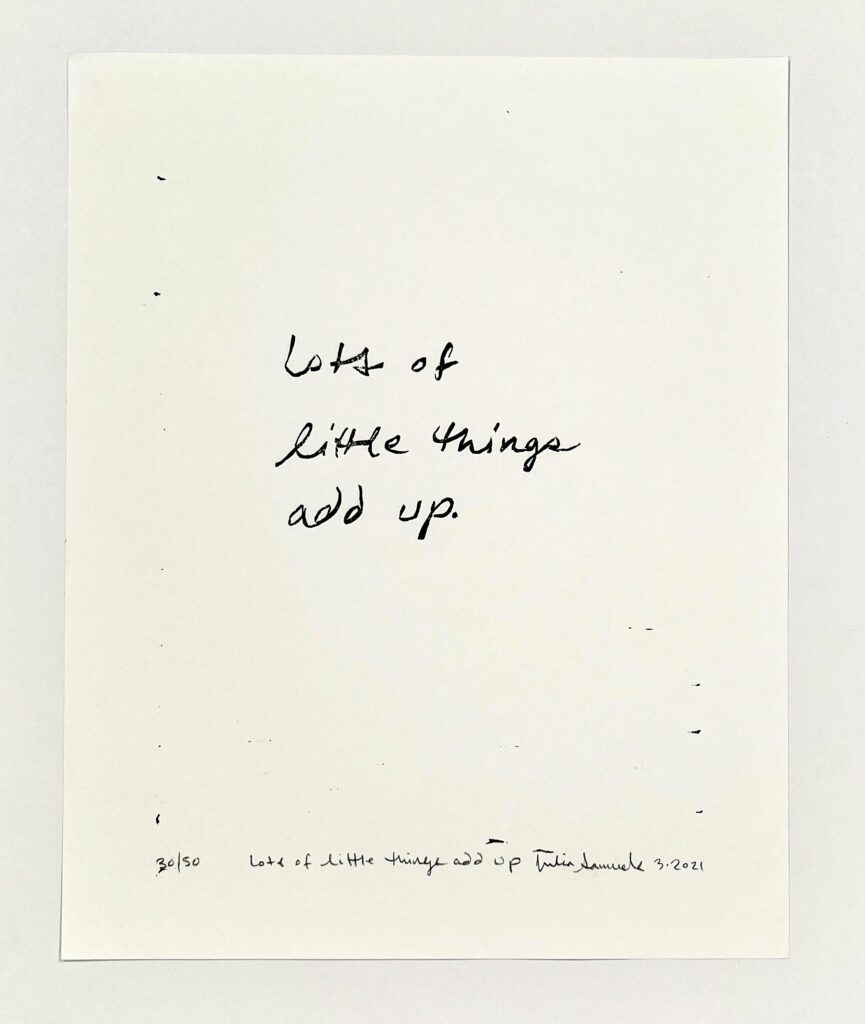 Lots of
little things
add up.
30/50 Lots of little things add up Julia Samuels 3.2021